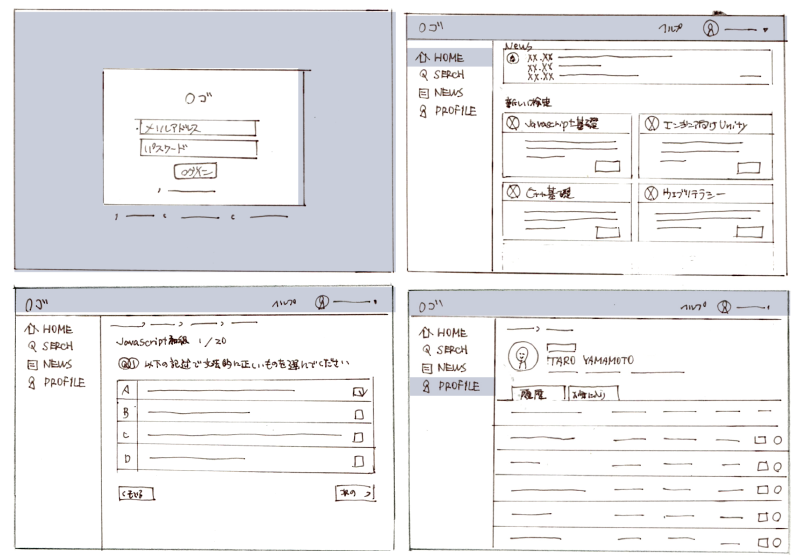 ロゴ
メールアドレス
パスワード
ログイン
ロゴ
ヘルプ
HOME
SERCH
NEWS
PROFILE
News
XX.XX
XX.XX
XX.XX
新しい検定
Javascript基礎
エンジニア向けUnity
C++基礎
ウェブリテラシー
ロゴ
ヘルプ
HOME
SERCH
NEWS
PROFILE
Javascript初級 1/20
Q1 以下の記述で文法的に正しいものを選んでください
A
B
C
D
< もどる
次の >
ロゴ
ヘルプ
HOME
SERCH
NEWS
PROFILE
TARO YAMAMOTO
履歴
お気に入り